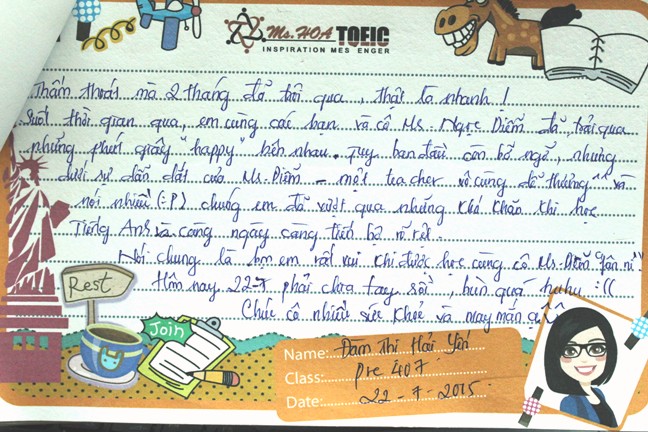 Ms. HOA TOEIC
INSPIRATION MES ENGER
Thấm thoát mà 2 tháng đã trôi qua, thật là nhanh!
Suốt thời gian qua, em cùng các bạn và cô Ms. Ngọc Diễm đã trải qua
những phút giây "happy" bên nhau. Tuy ban đầu còn bỡ ngỡ, nhưng
dưới sự dẫn dắt của Ms. Diễm - một teacher vô cùng dễ thương ^^ và
nói nhiều (:P) chúng em đã vượt qua những khó khăn khi học
Tiếng Anh và càng ngày càng tiến bộ rõ rệt.
Nói chung là em rất vui khi được học cùng cô Ms. Diễm
Hôm nay 22-7 phải chia tay rồi, buồn quá huhu :((
Chúc cô nhiều sức khỏe và may mắn ạ
Rest
Join
Name: Đàm Thị Hải Yến
Class: Pre 407
Date: 22 - 7 - 2015